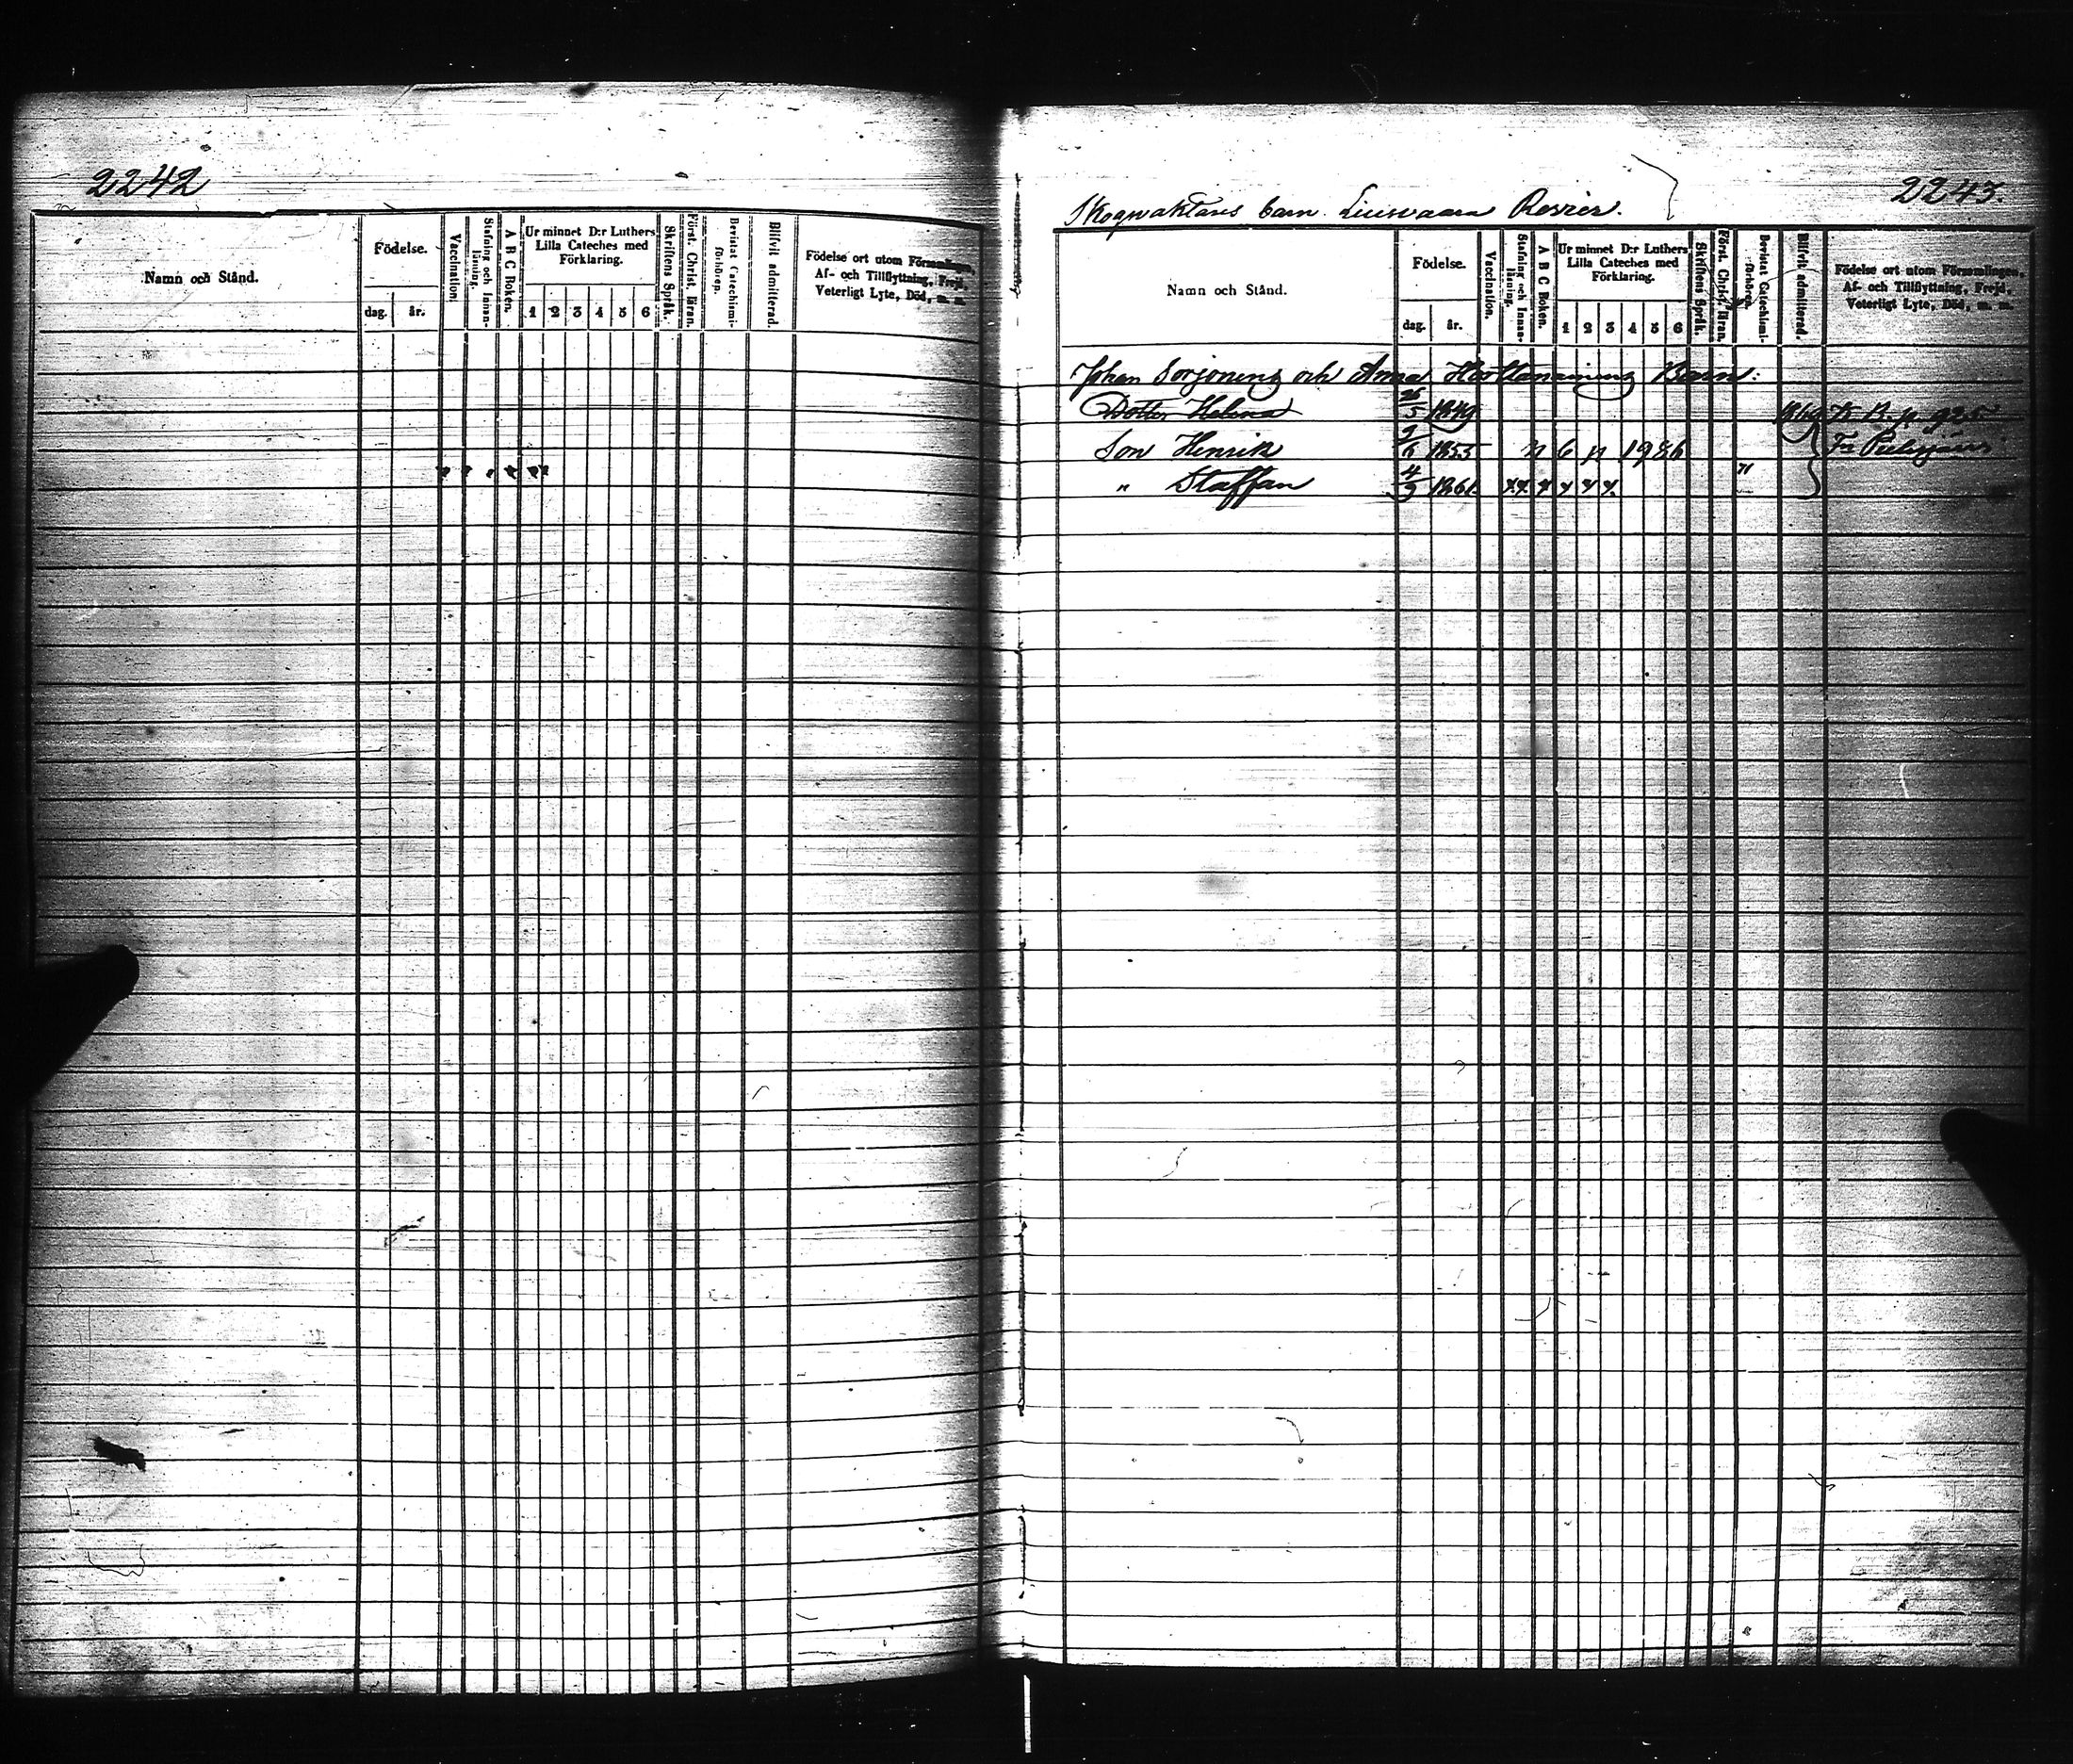 2242
Namn och Stånd.
Födelse.
dag.
år.
Vaccination.
Stafning och Innan-
läsning.
A B C Boken.
Ur minnet D:r Luthers
Lilla Cateches med
Förklaring.
1 2 3 4 5 6
Skriftens Språk.
Först. Christ. läran.
Bevistat Catechismi-
förhören.
Blifvit admitterad.
Födelse ort utom Församlingen,
Af- och Tillflyttning, Frejd,
Veterligt Lyte, Död, m. m.
2243.
Skogwaktares barn. Liuswaara Revier.
Namn och Stånd.
Födelse.
dag.
år.
Vaccination.
Stafning och Innan-
läsning.
A B C Boken.
Ur minnet D:r Luthers
Lilla Cateches med
Förklaring.
1 2 3 4 5 6
Skriftens Språk.
Först. Christ. läran.
Bevistat Catechismi-
förhören.
Blifvit admitterad.
Födelse ort utom Församlingen,
Af- och Tillflyttning, Frejd,
Veterligt Lyte, Död, m. m.
Johan Sorjoning och Anna Barn:
Dotter Helena 26/5 1849
Son Henrik 9/6 1855 1986
" Staffan 4/9 1861.